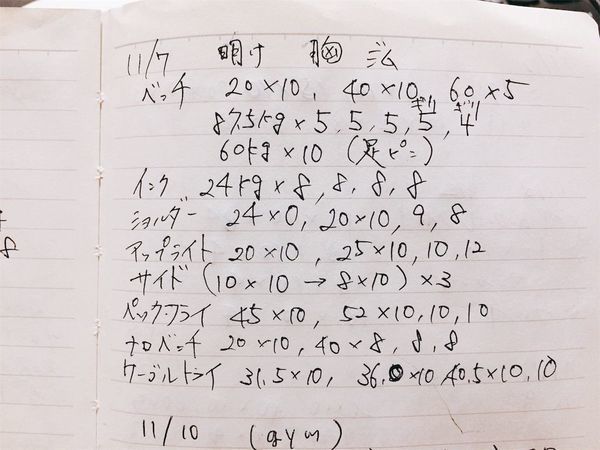 11/7 明け 胸 ジム
ベンチ 20×10, 40×10, 60×5
ギリ ギリ
87.5kg×5, 5, 5, 5, 4
60kg×10 (足ピン)
インク 24kg×8, 8, 8, 8
ショルダー 24×0, 20×10, 9, 8
アップライト 20×10, 25×10, 10, 12
サイド (10×10→8×10)×3
ペックフライ 45×10, 52×10, 10, 10
ナロベンチ 20×10, 40×8, 8, 8
ケーブルトライ 31.5×10, 36.0×10 40.5×10, 10
11/10 (gym)
8